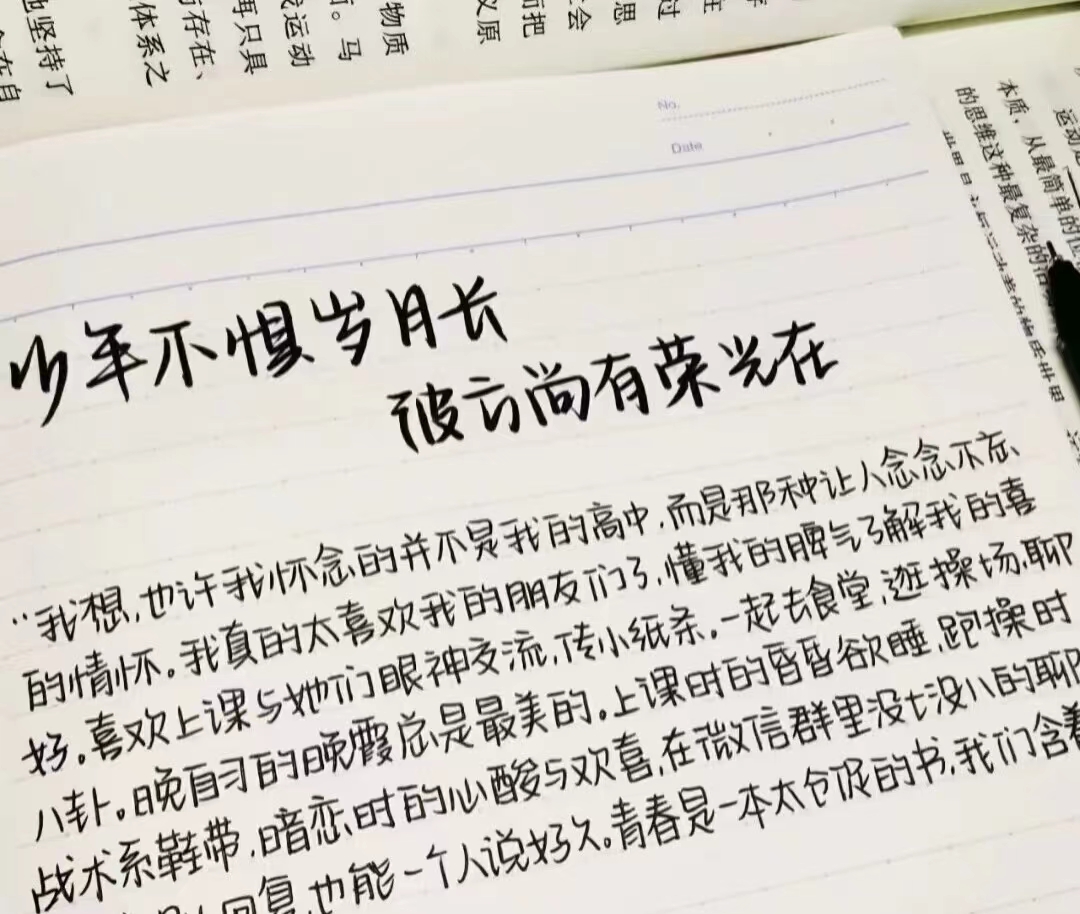 物质
马
运动
再只具
存在、
体系之
坚持了
在自
而把
义原
会
思
过
No.
Date
本质，从最简单的位
的思维这种最复杂的
少年不惧岁月长
彼方尚有荣光在
“我想，也许我怀念的并不是我的高中，而是那种让人念念不忘、
的情怀。我真的太喜欢我的朋友们了，懂我的脾气了解我的喜
好。喜欢上课与她们眼神交流，传小纸条。一起去食堂，逛操场，聊
八卦。晚自习的晚霞总是最美的。上课时的昏昏欲睡，跑操时
战术系鞋带，暗恋时的心酸与欢喜，在微信群里没七没八的聊
回复，也能一个人说好久。青春是一本太仓促的书，我们含着